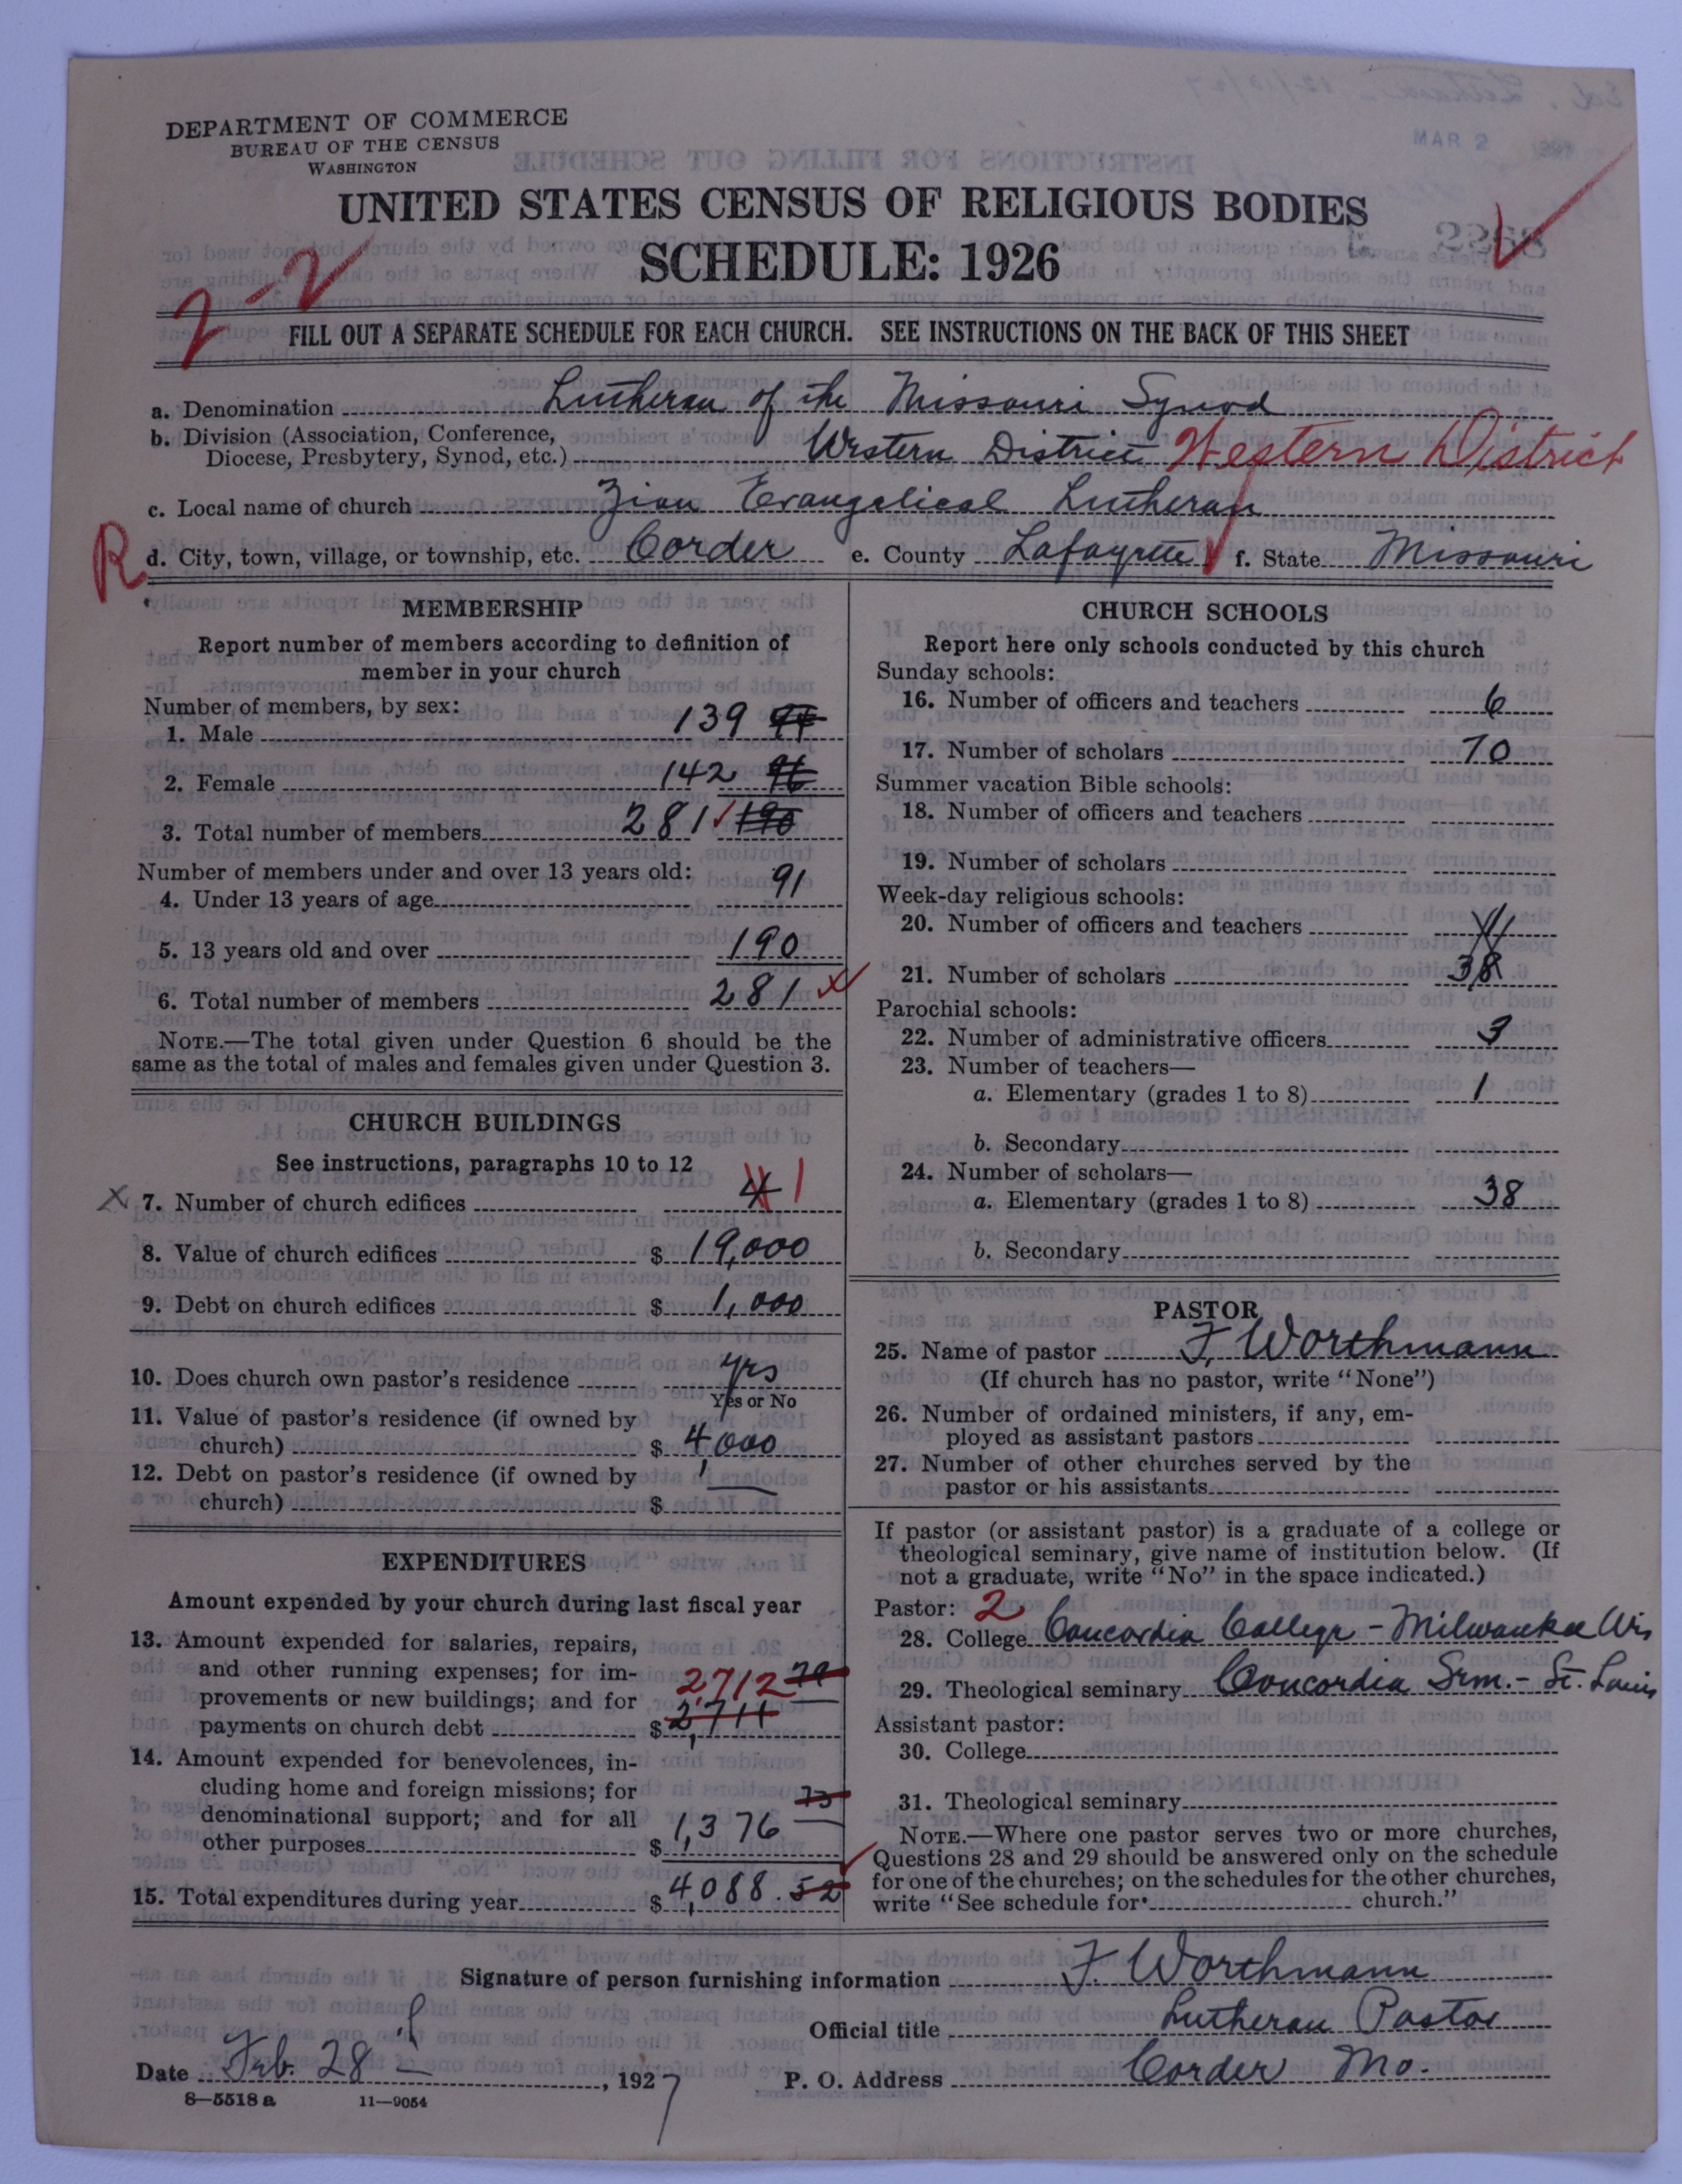 DEPARTMENT OF COMMERCE
BUREAU OF THE CENSUS
WASHINGTON
MAR 2
UNITED STATES CENSUS OF RELIGIOUS BODIES
SCHEDULE: 1926
2-2
FILL OUT A SEPARATE SCHEDULE FOR EACH CHURCH. SEE INSTRUCTIONS ON THE BACK OF THIS SHEET
a. Denomination Lutheran of the Missouri Synod
b. Division (Association, Conference,
Diocese, Presbytery, Synod, etc.) Western District Western District
c. Local name of church Zion Evangelical Lutheran
R d. City, town, village, or township, etc. Corder e. County Lafayette f. State Missouri
MEMBERSHIP
Report number of members according to definition of
member in your church
Number of members, by sex:
1. Male 139
2. Female 142 96
3. Total number of members 281 190
Number of members under and over 13 years old:
4. Under 13 years of age 91
5. 13 years old and over 190
6. Total number of members 281
NOTE.—The total given under Question 6 should be the
same as the total of males and females given under Question 3.
CHURCH BUILDINGS
See instructions, paragraphs 10 to 12
x 7. Number of church edifices 4 1
8. Value of church edifices $ 19,000
9. Debt on church edifices $ 1,000
10. Does church own pastor's residence yes
Yes or No
11. Value of pastor's residence (if owned by
church) $ 4,000
12. Debt on pastor's residence (if owned by
church) $ —
EXPENDITURES
Amount expended by your church during last fiscal year
13. Amount expended for salaries, repairs,
and other running expenses; for im-
provements or new buildings; and for
payments on church debt $ 2,711 79 2,712
14. Amount expended for benevolences, in-
cluding home and foreign missions; for
denominational support; and for all
other purposes $ 1,376 73
15. Total expenditures during year $ 4,088.52
CHURCH SCHOOLS
Report here only schools conducted by this church
Sunday schools:
16. Number of officers and teachers 6
17. Number of scholars 70
Summer vacation Bible schools:
18. Number of officers and teachers
19. Number of scholars
Week-day religious schools:
20. Number of officers and teachers
21. Number of scholars 38
Parochial schools:
22. Number of administrative officers 3
23. Number of teachers—
a. Elementary (grades 1 to 8) 1
b. Secondary
24. Number of scholars—
a. Elementary (grades 1 to 8) 38
b. Secondary
PASTOR
25. Name of pastor F. Worthmann
(If church has no pastor, write "None")
26. Number of ordained ministers, if any, em-
ployed as assistant pastors
27. Number of other churches served by the
pastor or his assistants
If pastor (or assistant pastor) is a graduate of a college or
theological seminary, give name of institution below. (If
not a graduate, write "No" in the space indicated.)
Pastor: 2
28. College Concordia College - Milwaukee Wis
29. Theological seminary Concordia Sem. - St. Louis
Assistant pastor:
30. College
31. Theological seminary
NOTE.—Where one pastor serves two or more churches,
Questions 28 and 29 should be answered only on the schedule
for one of the churches; on the schedules for the other churches,
write "See schedule for church."
Signature of person furnishing information F. Worthmann
Official title Lutheran Pastor
Date Feb. 28, 1927 P. O. Address Corder Mo.
8—5518 a 11—9054